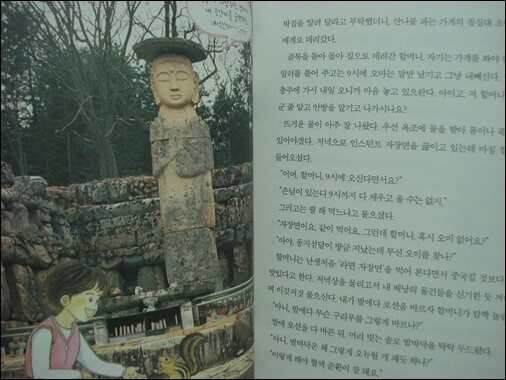 박집을 알려 달라고 부탁했더니, 산나물 파는 가게의 침실대 초
에게로 데려갔다.
골목을 돌아 돌아 집으로 데려간 할머니, 자기는 가게를 봐야
일러를 틀어 주고는 9시에 오마는 말만 남기고 그냥 내빼신다.
충주에 가서 내일 오니까 마음 놓고 있으란다. 아이고, 저 할머니,
군 줄 알고 안방을 맡기고 나가시나요?
뜨거운 물이 아주 잘 나왔다. 우선 욕조에 물을 받아 몸이나 푹
있어야겠다. 저녁으로 인스턴트 자장면을 끓이고 있는데 마침 할
들어오셨다.
"어머, 할머니, 9시에 오신다면서요?"
"손님이 있는디 9시까지 다 채우고 올 수는 없지."
그러고는 뭘 해 먹느냐고 물으셨다.
"자장면이요. 같이 먹어요. 그런데 할머니, 혹시 오이 없어요?"
"아야, 동지섣달이 방금 지났는데 무신 오이를 찾나?"
할머니는 난생처음 '라면 자장면'을 먹어 본다면서 중국집 것보다
맛있다고 한다. 저녁상을 물리고서 내 배낭의 물건들을 신기한 듯
며 이것저것 물으신다. 내가 발에다 로션을 바르자 할머니가 깜짝 놀
"아니, 발에다 무슨 구리무를 그렇게 바르나?"
발에 로션을 다 바른 뒤, 머리 빗는 솔로 발바닥을 탁탁 두드렸다.
"아니, 발바닥은 왜 그렇게 오뉴월 개 패듯 하나?"
"이렇게 해야 혈액 순환이 잘 돼요."